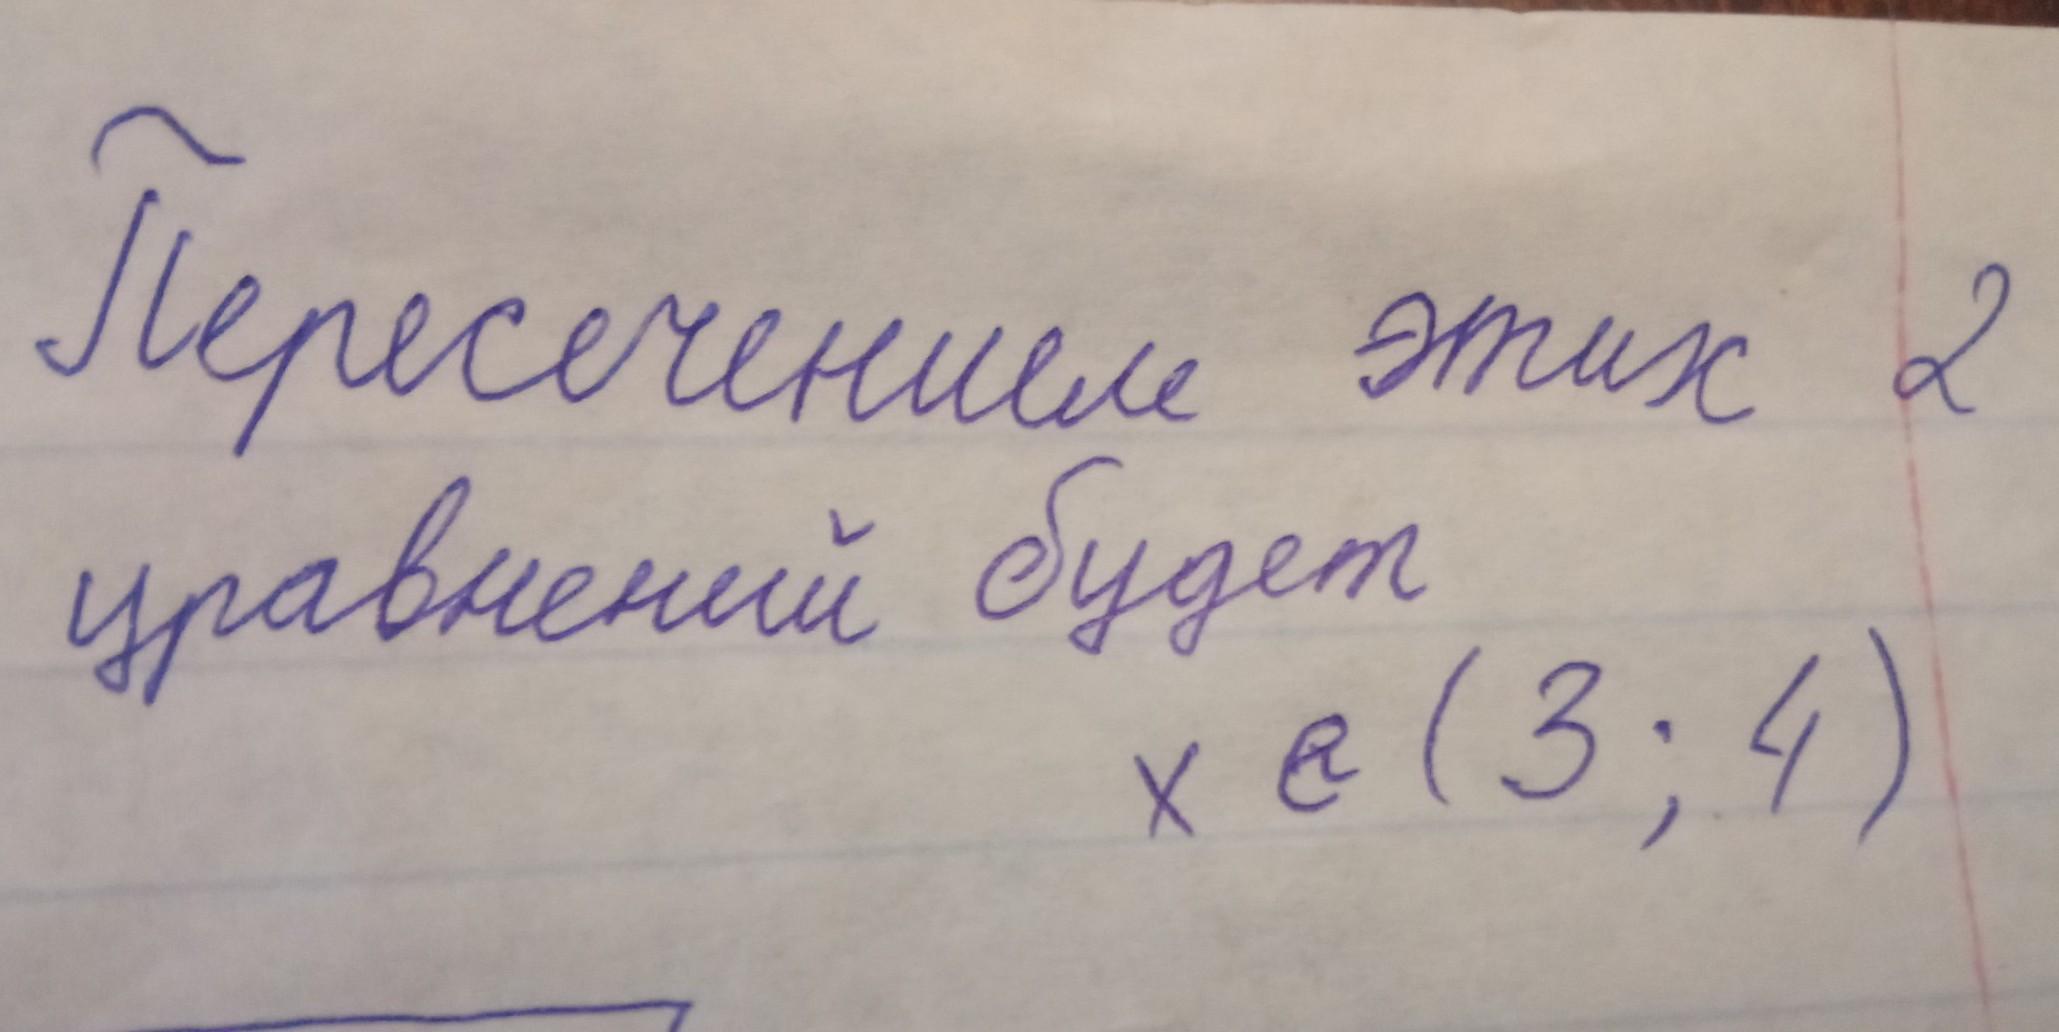 Пересечением этих 2
уравнений будет
x ∈ (3; 4)